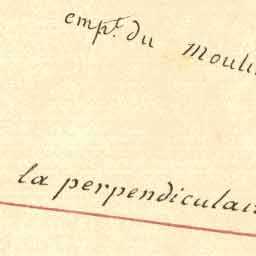 empt. du Mouli
la perpendiculai